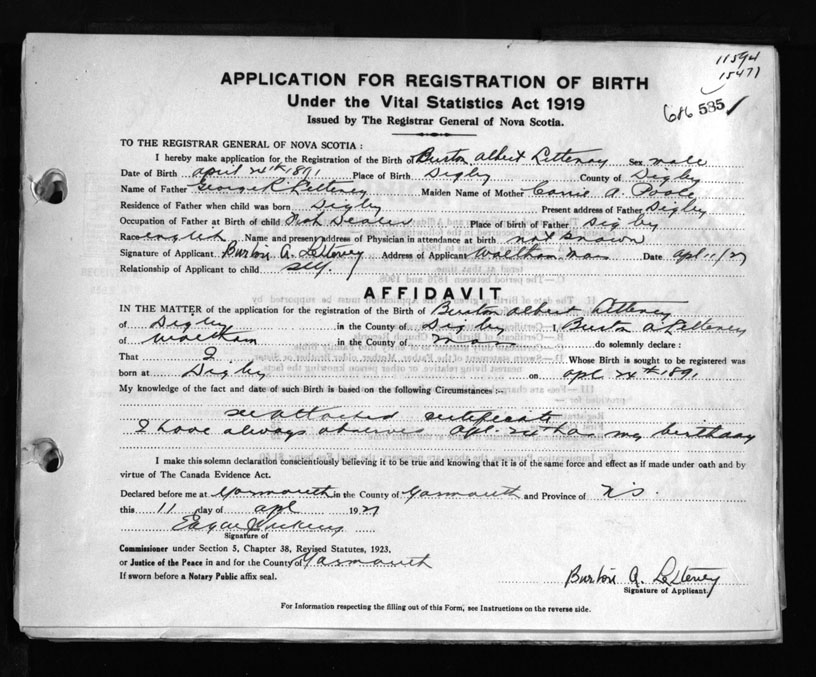 11594
15471
APPLICATION FOR REGISTRATION OF BIRTH
Under the Vital Statistics Act 1919
Issued by The Registrar General of Nova Scotia.
686 585
TO THE REGISTRAR GENERAL OF NOVA SCOTIA:
I hereby make application for the Registration of the Birth of Burton Albert Letteney Sex male
Date of Birth april 24th 1891 Place of Birth Digby County of Digby
Name of Father George Letteney Maiden Name of Mother Carrie A.
Residence of Father when child was born Digby Present address of Father Digby
Occupation of Father at Birth of child Fish Dealer Place of birth of Father Digby
Race english Name and present address of Physician in attendance at birth not known
Signature of Applicant Burton A. Letteney Address of Applicant Waltham Mass Date apl 11/27
Relationship of Applicant to child self.
AFFIDAVIT
IN THE MATTER of the application for the registration of the Birth of Burton albert Letteney
of Digby in the County of Digby I, Burton A Letteney
of Waltham in the County of Mass do solemnly declare:
That I Whose Birth is sought to be registered was
born at Digby on apl 24th 1891
My knowledge of the fact and date of such Birth is based on the following Circumstances :-
see attached certificate
I have always observed apl. 24th as my birthday
I make this solemn declaration conscientiously believing it to be true and knowing that it is of the same force and effect as if made under oath and by
virtue of The Canada Evidence Act.
Declared before me at Yarmouth in the County of Yarmouth and Province of N.S.
this 11 day of apl 1927
Signature of
Commissioner under Section 5, Chapter 38, Revised Statutes, 1923,
or Justice of the Peace in and for the County of Yarmouth
If sworn before a Notary Public affix seal.
Burton A. Letteney
Signature of Applicant.
For Information respecting the filling out of this Form, see Instructions on the reverse side.